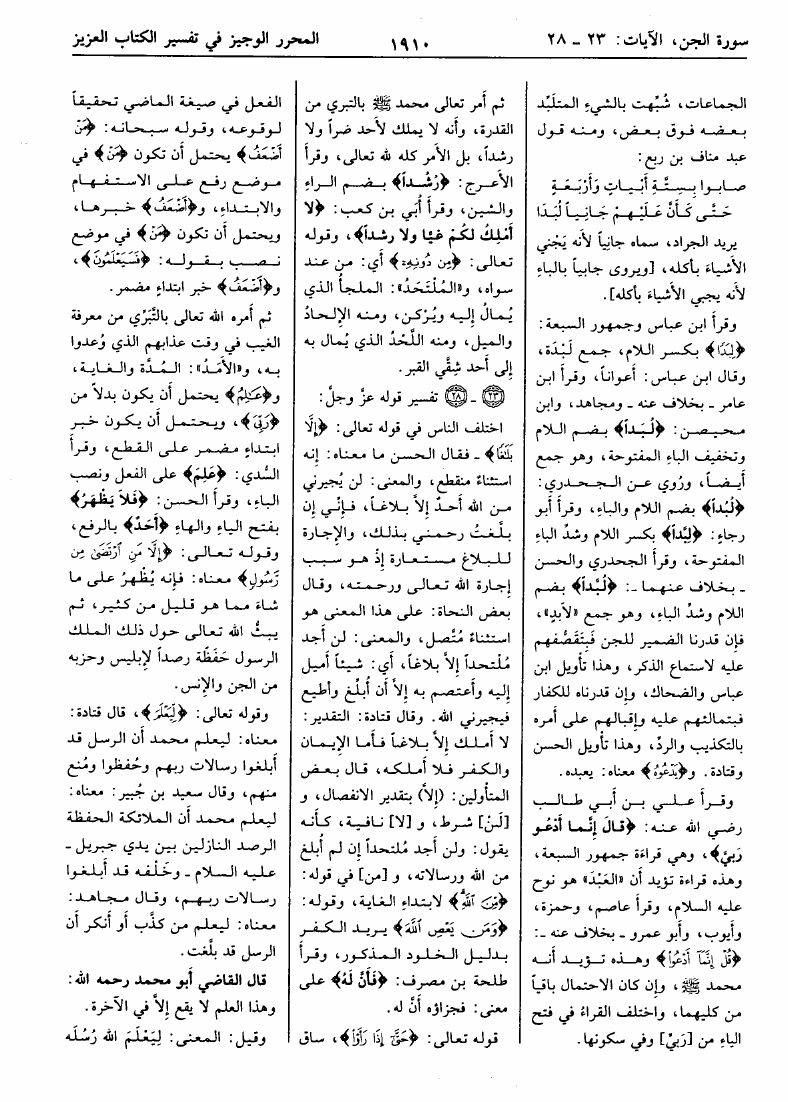 سورة الجن، الآيات: ٢٣ ـ ٢٨
١٩١٠
المحرر الوجيز في تفسير الكتاب العزيز
الجماعات، شُبِّهت بالشيءِ المتلَبِّد
بعضه فوق بعض، ومنه قول
عبد مناف بن ربع:
صابوا بِستَّةِ أَبْيَاتٍ وَأَرْبَعَةٍ
حَتَّى كَأَنَّ عَلَيْهِمْ جَانِياً لُبَدَا
يريد الجراد، سماه جانياً لأنه يَجْني
الأشياءَ بأكله، [ويروى جابياً بالباءِ
لأنه يجبي الأشياءَ بأكله].
وقرأ ابن عباس وجمهور السبعة:
﴿لِبَدًا﴾ بكسر اللام، جمع لَبْدَة،
وقال ابن عباس: أعواناً، وقرأ ابن
عامر ـ بخلاف عنه ـ ومجاهد، وابن
محيصن: ﴿لُبَداً﴾ بضم اللام
وتخفيف الباءِ المفتوحة، وهو جمع
أيضاً، ورُوي عن الجحدري:
﴿لُبُداً﴾ بضم اللام والباءِ، وقرأ أبو
رجاءٍ: ﴿لِبَّداً﴾ بكسر اللام وشدِّ الباءِ
المفتوحة، وقرأ الجحدري والحسن
ـ بخلاف عنهما ـ: ﴿لُبَّداً﴾ بضم
اللام وشدِّ الباءِ، وهو جمع «لابدٍ»،
فإن قدرنا الضمير للجن فبتَقَصُّفهم
عليه لاستماع الذكر، وهذا تأويل ابن
عباس والضحاك، وإن قدرناه للكفار
فبتمالئهم عليه وإقبالهم على أمره
بالتكذيب والردِّ، وهذا تأويل الحسن
وقتادة. و﴿يَدْعُوهُ﴾ معناه: يعبده.
وقرأ علي بن أبي طالب
رضي الله عنه: ﴿قَالَ إنَّما أدْعُو
رَبِّيْ﴾، وهي قراءَة جمهور السبعة،
وهذه قراءة تؤيد أن «العَبْدَ» هو نوح
عليه السلام، وقرأ عاصم، وحمزة،
وأيوب، وأبو عمرو ـ بخلاف عنه ـ:
﴿قُلْ إِنَّمَا أَدْعُوا﴾ وهذه تؤيد أنه
محمد ﷺ، وإن كان الاحتمال باقياً
من كليهما، واختلف القراءُ في فتح
الياءِ من [رَبِيْ] وفي سكونها.
ثم أمر تعالى محمد ﷺ بالتبري من
القدرة، وأنه لا يملك لأحد ضراً ولا
رشداً، بل الأمر كله لله تعالى، وقرأ
الأعرج: ﴿رُشُداً﴾ بضم الراءِ
والشين، وقرأ أُبَي بن كعب: ﴿لا
أمْلِكُ لَكُمْ غَيًّا ولا رشداً﴾، وقوله
تعالى: ﴿مِن دُونِهِۦ﴾ أي: من عند
سواه، و«المُلْتَحَدُ»: الملجأ الذي
يُمالُ إليه ويُرْكن، ومنه الإلحادُ
والميل، ومنه اللَّحْدُ الذي يُمال به
إلى أحد شِقَّي القبر.
(٢٣) ـ (٢٨) تفسير قوله عزَّ وجلَّ:
اختلف الناس في قوله تعالى: ﴿إِلَّا
بَلَٰغًا﴾ ـ فقال الحسن ما معناه: إنه
استثناءٌ منقطع، والمعنى: لن يُجيرني
من الله أحدٌ إلاَّ بلاغاً، فإنِّي إن
بلَّغتُ رحمني بذلك، والإجارة
للبلاغ مستعارة إذْ هو سبب
إجارة الله تعالى ورحمته، وقال
بعض النحاة: على هذا المعنى هو
استثناءٌ مُتَّصل، والمعنى: لن أجد
مُلتحداً إلاَّ بلاغاً، أي: شيئاً أميل
إليه وأعتصم به إلاَّ أن أبلِّغ وأُطيع
فيجيرني الله. وقال قتادة: التقدير:
لا أملك إلاَّ بلاغاً فأما الإيمان
والكفر فلا أملكه، قال بعض
المتأولين: (إلاَّ) بتقدير الانفصال، و
[لَنْ] شرط، و [لا] نافية، كأنه
يقول: ولن أجد مُلتحداً إن لم أبلغ
من الله ورسالاته، و [من] في قوله:
﴿مِّنَ اللَّهِ﴾ لابتداءِ الغاية، وقوله:
﴿وَمَن يَعْصِ اللَّهَ﴾ يريد الكفر
بدليل الخلود المذكور، وقرأ
طلحة بن مصرف: ﴿فَأَنَّ لَهُ﴾ على
معنى: فجزاؤه أنَّ له.
قوله تعالى: ﴿حَتَّىٰ إِذَا رَأَوْا﴾، ساق
الفعل في صيغة الماضي تحقيقاً
لوقوعه، وقوله سبحانه: ﴿مَنْ
أَضْعَفُ﴾ يحتمل أن تكون ﴿مَنْ﴾ في
موضع رفع على الاستفهام
والابتداءِ، و﴿أَضْعَفُ﴾ خبرها،
ويحتمل أن تكون ﴿مَنْ﴾ في موضع
نصب بقوله: ﴿فَسَيَعْلَمُونَ﴾،
و﴿أَضْعَفُ﴾ خبر ابتداءٍ مضمر.
ثم أمره الله تعالى بالتَّبَرِّي من معرفة
الغيب في وقت عذابهم الذي وُعدوا
به، و«الأَمَدُ»: المُدَّة والغاية،
و﴿عَٰلِمُ﴾ يحتمل أن يكون بدلاً من
﴿رَبِّيٓ﴾، ويحتمل أن يكون خبر
ابتداءٍ مضمر على القطع، وقرأ
السُّدي: ﴿عَلِمَ﴾ على الفعل ونصب
الباءِ، وقرأ الحسن: ﴿فَلاَ يَظْهَرُ﴾
بفتح الياءِ والهاءِ ﴿أَحَدٌ﴾ بالرفع،
وقوله تعالى: ﴿إِلَّا مَنِ ارْتَضَىٰ مِن
رَّسُولٍ﴾ معناه: فإنه يُظْهرُ على ما
شاءَ مما هو قليل من كثير، ثم
يبثُّ الله تعالى حول ذلك الملك
الرسول حَفَظَة رصداً لإبليس وحزبه
من الجن والإنس.
وقوله تعالى: ﴿لِيَعْلَمَ﴾، قال قتادة:
معناه: ليعلم محمد أن الرسل قد
أبلغوا رسالات ربهم وحُفظوا ومُنع
منهم، وقال سعيد بن جُبير: معناه:
ليعلم محمد أن الملائكة الحفظة
الرصد النازلين بين يدي جبريل ـ
عليه السلام ـ وخَلْفه قد أبلغوا
رسالات ربهم، وقال مجاهد:
معناه: ليعلم من كذَّب أو أنكر أن
الرسل قد بلَّغت.
قال القاضي أبو محمد رحمه الله:
وهذا العلم لا يقع إلاَّ في الآخرة.
وقيل: المعنى: لِيَعْلَمَ الله رُسُلَه